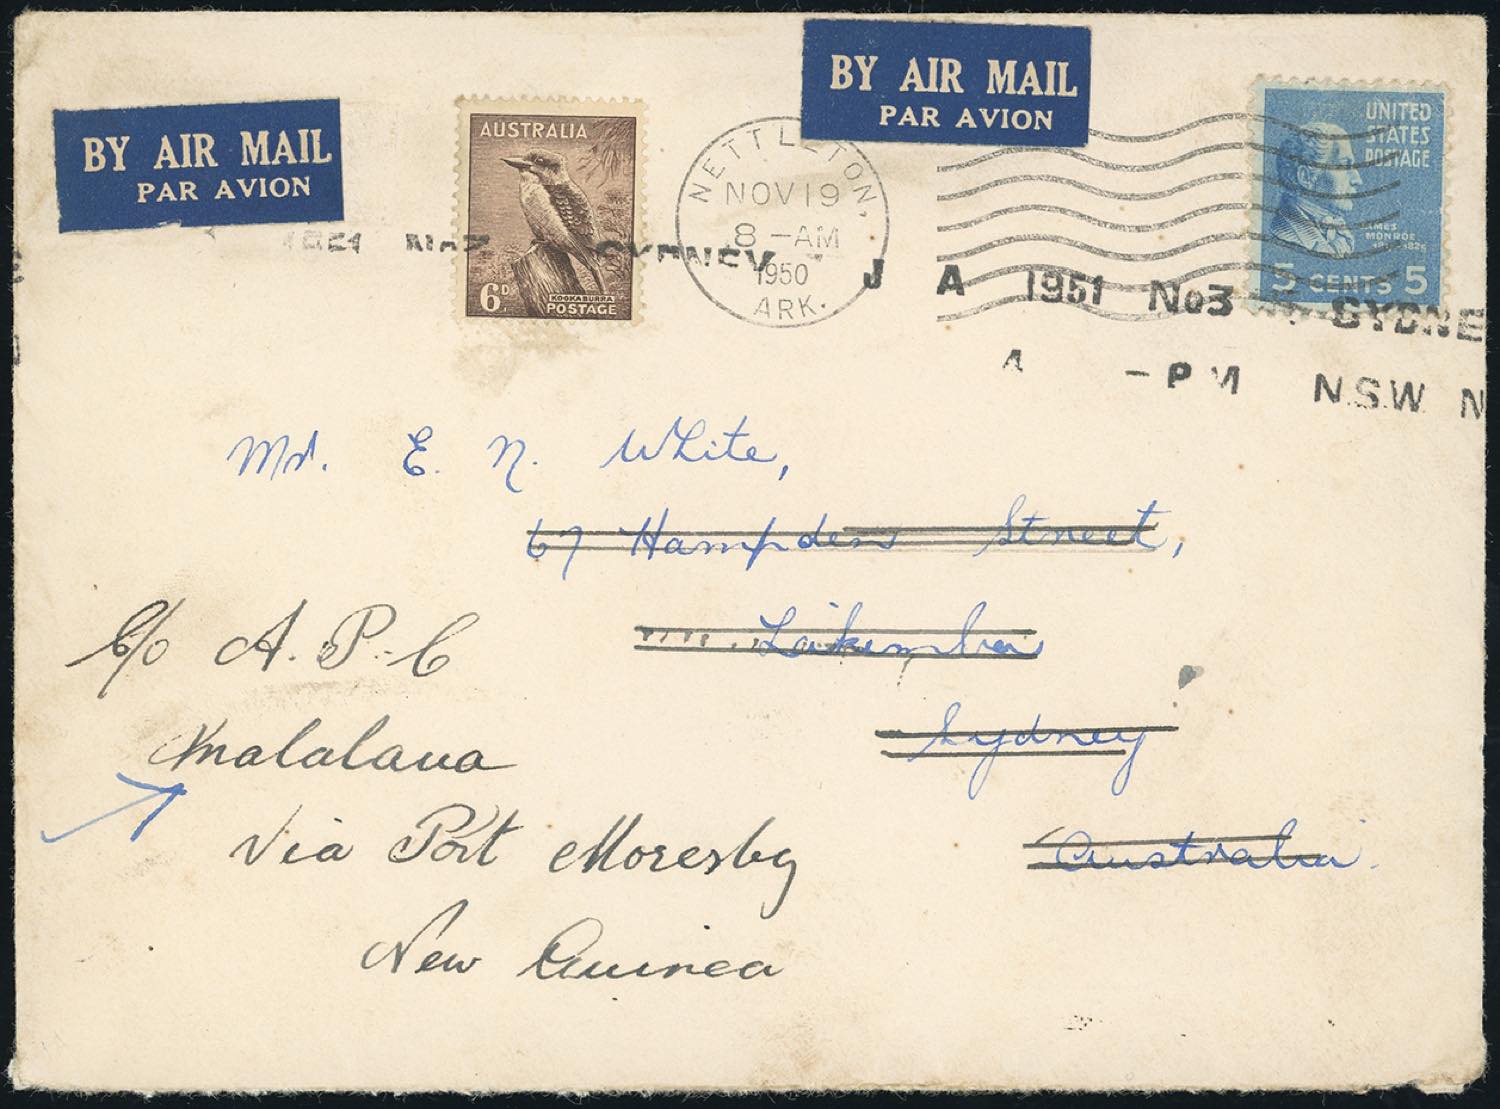 BY AIR MAIL
PAR AVION
BY AIR MAIL
PAR AVION
AUSTRALIA
6D
KOOKABURRA
POSTAGE
NETTLETON,
NOV 19
8 - AM
1950
ARK.
UNITED
STATES
POSTAGE
JAMES
MONROE
5 CENTS 5
SYDNEY
J A 1951 No3 SYDNE
A - PM N.S.W. N
Mr. E. N. White,
67 Hampden Street,
Lakemba
Sydney
Australia.
C/o A. P. C
Malalaua
Via Port Moresby
New Guinea